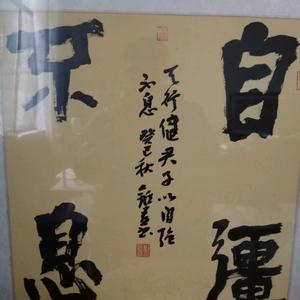 自彊
不息
天行健君子以自强
不息 癸巳秋